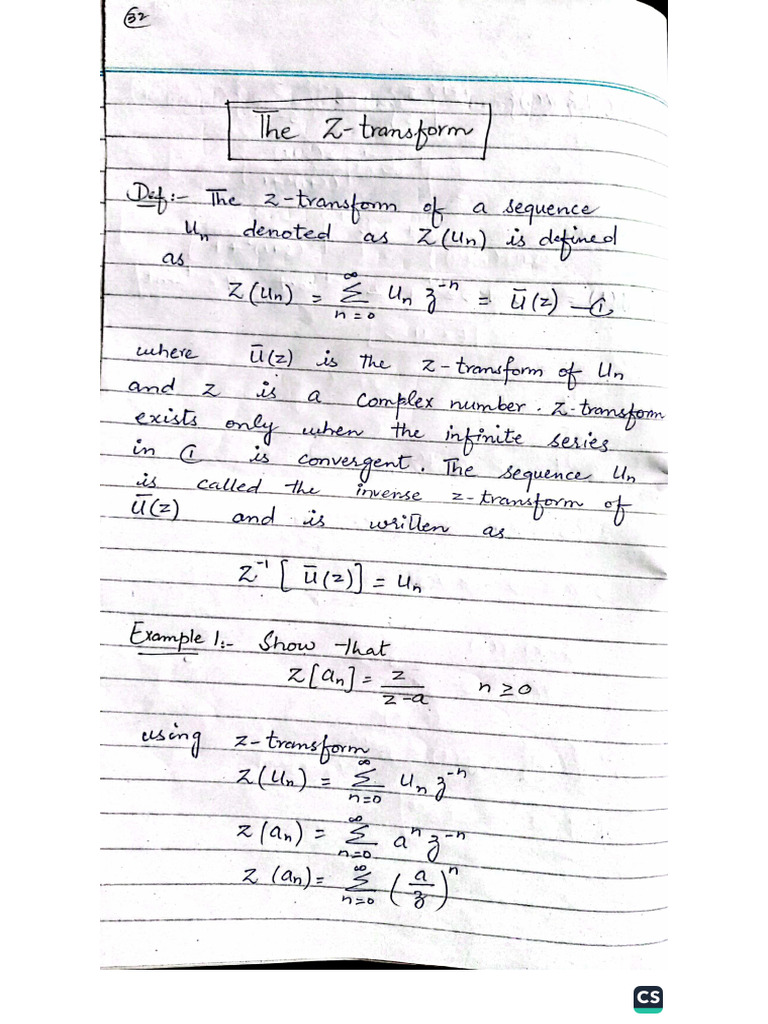 32
The Z-transform
Def:- The z-transform of a sequence
Un denoted as Z(Un) is defined
as
Z(Un) = ∞ Σ n=0 Un z^-n = Ū(z) —①
where Ū(z) is the z-transform of Un
and z is a complex number. Z-transform
exists only when the infinite series
in ① is convergent. The sequence Un
is called the inverse z-transform of
Ū(z) and is written as
Z^-1 [ Ū(z)] = Un
Example 1:- Show that
Z[an] = z/(z-a) n ≥ 0
using z-transform
Z(Un) = ∞ Σ n=0 Un z^-n
Z(an) = ∞ Σ n=0 a^n z^-n
Z (an) = ∞ Σ n=0 (a/z)^n
CS